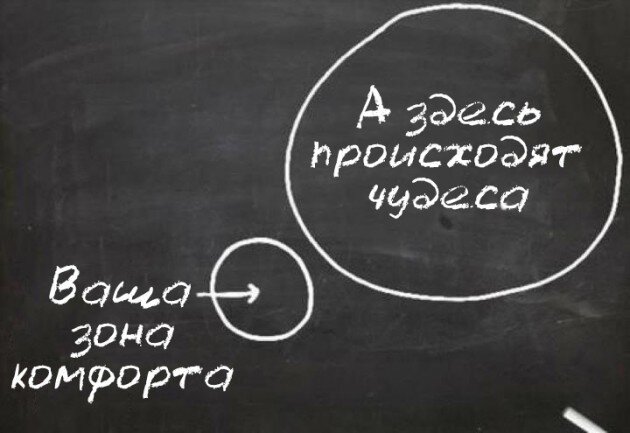 А здесь
происходят
чудеса
Ваша
зона
комфорта